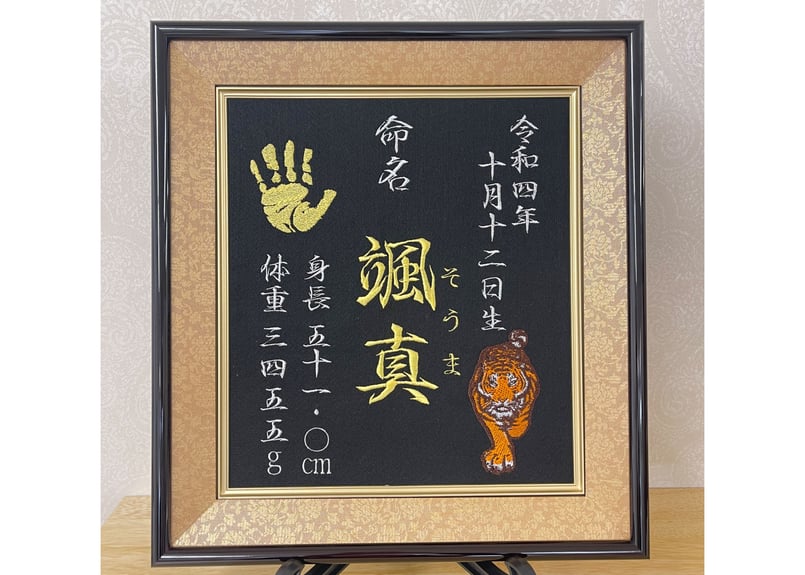 令和四年
十月十二日生
命名
颯真
そうま
身長 五十一・〇cm
体重 三四五五g